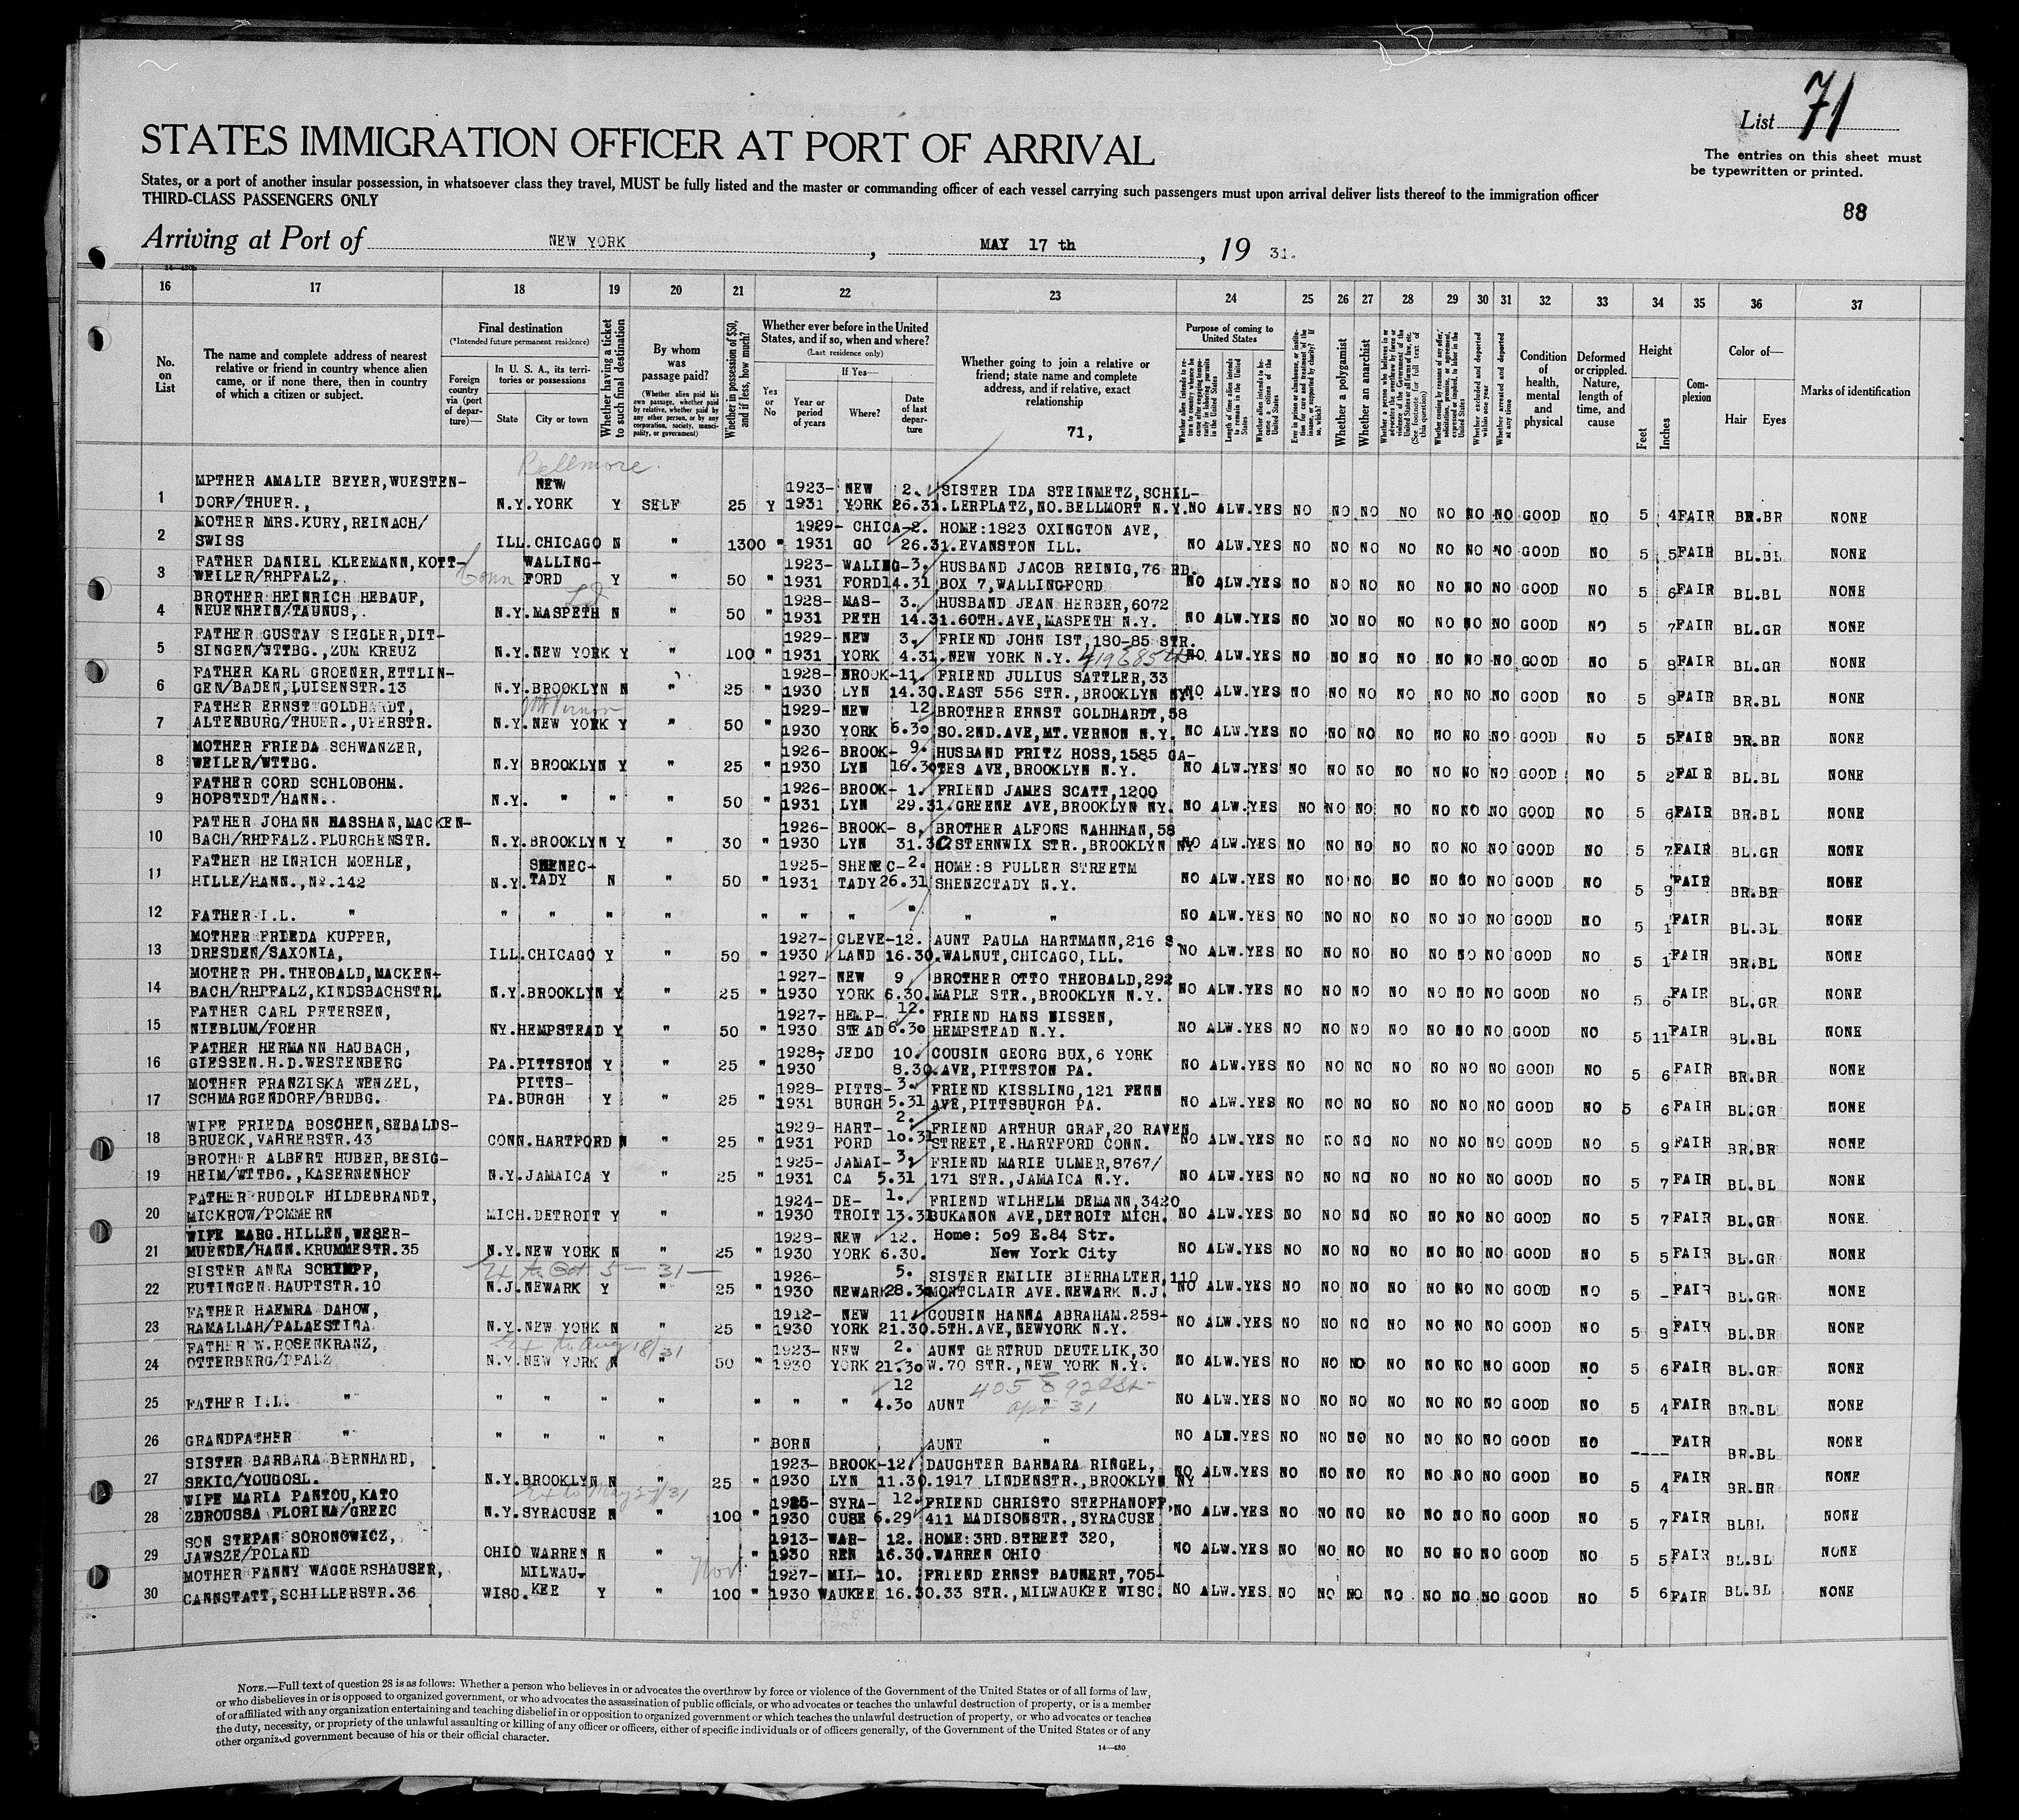 List 71
STATES IMMIGRATION OFFICER AT PORT OF ARRIVAL
The entries on this sheet must
be typewritten or printed.
States, or a port of another insular possession, in whatsoever class they travel, MUST be fully listed and the master or commanding officer of each vessel carrying such passengers must upon arrival deliver lists thereof to the immigration officer
THIRD-CLASS PASSENGERS ONLY
88
Arriving at Port of NEW YORK, MAY 17 th, 19 31.
14—430b
16 17 18 19 20 21 22 23 24 25 26 27 28 29 30 31 32 33 34 35 36 37
No. on List
The name and complete address of nearest relative or friend in country whence alien came, or if none there, then in country of which a citizen or subject.
Final destination
(*Intended future permanent residence)
Foreign country via (port of departure)—
In U. S. A., its territories or possessions
State City or town
Whether having a ticket to such final destination
By whom was passage paid?
(Whether alien paid his own passage, whether paid by relative, whether paid by any other person, or by any corporation, society, municipality, or government)
Whether in possession of $50, and if less, how much?
Whether ever before in the United States, and if so, when and where?
(Last residence only)
Yes or No
If Yes—
Year or period of years Where? Date of last departure
Whether going to join a relative or friend; state name and complete address, and if relative, exact relationship
71,
Purpose of coming to United States
Length of time alien intends to remain in the United States
Whether alien intends to become a citizen of the United States
Whether a polygamist
Whether an anarchist
Whether excluded and deported within one year
Whether arrested and deported at any time
Condition of health, mental and physical
Deformed or crippled. Nature, length of time, and cause
Height
Feet Inches
Complexion
Color of—
Hair Eyes
Marks of identification
Bellmore.
1 MPTHER AMALIE BEYER,WUESTEN-
DORF/THUER., N.Y. NEW YORK Y SELF 25 Y 1923-1931 NEW YORK 2.26.31. SISTER IDA STEINMETZ,SCHIL-
LERPLATZ,NO.BELLMORT N.Y. NO ALW.YES NO NO NO NO NO NO NO GOOD NO 5 4 FAIR BR.BR NONE
2 MOTHER MRS.KURY,REINACH/
SWISS ILL.CHICAGO N " 1300 " 1929-1931 CHICAGO 2.26.31. HOME:1823 OXINGTON AVE,
EVANSTON ILL. NO ALW.YES NO NO NO NO NO NO NO GOOD NO 5 5 FAIR BL.BL NONE
3 FATHER DANIEL KLEEMANN,KOTT-
WEILER/RHPFALZ, Conn WALLING-FORD Y " 50 " 1923-1931 WALING-FORD 3.14.31 HUSBAND JACOB REINIG,76 RD.
BOX 7,WALLINGFORD NO ALW.YES NO NO NO NO NO NO NO GOOD NO 5 6 FAIR BL.BL NONE
4 BROTHER HEINRICH HEBAUF,
NEUENHEIN/TAUNUS,. N.Y.MASPETH N " 50 " 1928-1931 MAS-PETH 3.14.31. HUSBAND JEAN HERBER,6072
60TH.AVE,MASPETH N.Y. NO ALW.YES NO NO NO NO NO NO NO GOOD NO 5 7 FAIR BL.GR NONE
5 FATHER GUSTAV SIEGLER,DIT-
SINGEN/WTTBG.,ZUM KREUZ N.Y.NEW YORK Y " 100 " 1929-1931 NEW YORK 3.4.31. FRIEND JOHN IST,180-85 STR.
NEW YORK N.Y. NO ALW.YES NO NO NO NO NO NO NO GOOD NO 5 8 FAIR BL.GR NONE
6 FATHER KARL GROENER,ETTLIN-
GEN/BADEN,LUISENSTR.13 N.Y.BROOKLYN N " 25 " 1928-1930 BROOK-LYN 11.14.30. FRIEND JULIUS SATTLER,33
EAST 556 STR.,BROOKLYN NY. NO ALW.YES NO NO NO NO NO NO NO GOOD NO 5 8 FAIR BR.BL NONE
Mt Vernon
7 FATHER ERNST GOLDHARDT,
ALTENBURG/THUER.,UFERSTR. N.Y.NEW YORK Y " 50 " 1929-1930 NEW YORK 12 6.30 BROTHER ERNST GOLDHARDT,58
SO.2ND.AVE,MT.VERNON N.Y. NO ALW.YES NO NO NO NO NO NO NO GOOD NO 5 5 FAIR BR.BR NONE
8 MOTHER FRIEDA SCHWANZER,
WEILER/WTTBG. N.Y BROOKLYN Y " 25 " 1926-1930 BROOK-LYN 9.16.30 HUSBAND FRITZ HOSS,1585 GA-
TES AVE,BROOKLYN N.Y. NO ALW.YES NO NO NO NO NO NO NO GOOD NO 5 2 FAIR BL.BL NONE
9 FATHER CORD SCHLOBOHM.
HOPSTEDT/HANN.. N.Y. " " " 50 " 1926-1931 BROOK-LYN 1.29.31. FRIEND JAMES SCATT,1200
GREENE AVE,BROOKLYN NY. NO ALW.YES NO NO NO NO NO NO NO GOOD NO 5 6 FAIR BR.BL NONE
10 FATHER JOHANN NASSHAN,MACKEN-
BACH/RHPFALZ.FLURCHENSTR. N.Y.BROOKLYN Y " 30 " 1926-1930 BROOK-LYN 8,31.30 BROTHER ALFONS NAHHMAN,58
STERNWIX STR.,BROOKLYN NY NO ALW.YES NO NO NO NO NO NO NO GOOD NO 5 7 FAIR BL.GR NONE
11 FATHER HEINRICH MOEHLE,
HILLE/HANN.,No.142 N.Y. SHENEC-TADY N " 50 " 1925-1931 SHENEC-TADY 2.26.31 HOME:8 FULLER STREETM
SHENECTADY N.Y. NO ALW.YES NO NO NO NO NO NO NO GOOD NO 5 8 FAIR BR.BR NONE
12 FATHER I.L. " " " " " " " " " " " NO ALW.YES NO NO NO NO NO NO NO GOOD NO 5 1 FAIR BL.BL NONE
13 MOTHER FRIEDA KUPFER,
DRESDEN/SAXONIA, ILL.CHICAGO Y " 50 " 1927-1930 CLEVE-LAND 12.16.30. AUNT PAULA HARTMANN,216 S.
WALNUT,CHICAGO,ILL. NO ALW.YES NO NO NO NO NO NO NO GOOD NO 5 1 FAIR BR.BL NONE
14 MOTHER PH.THEOBALD,MACKEN-
BACH/RHPFALZ,KINDSBACHSTRL N.Y.BROOKLYN Y " 25 " 1927-1930 NEW YORK 9 6.30. BROTHER OTTO THEOBALD,292
MAPLE STR.,BROOKLYN N.Y. NO ALW.YES NO NO NO NO NO NO NO GOOD NO 5 6 FAIR BL.GR NONE
15 FATHER CARL PETERSEN,
NIEBLUM/FOEHR NY.HEMPSTEAD Y " 50 " 1927-1930 HEMP-STEAD 12.6.30 FRIEND HANS NISSEN,
HEMPSTEAD N.Y. NO ALW.YES NO NO NO NO NO NO NO GOOD NO 5 11 FAIR BL.BL NONE
16 FATHER HERMANN HAUBACH,
GIESSEN.H.D.WESTENBERG PA.PITTSTON Y " 25 " 1928-1930 JEDO 10.8.30. COUSIN GEORG BUX,6 YORK
AVE,PITTSTON PA. NO ALW.YES NO NO NO NO NO NO NO GOOD NO 5 6 FAIR BR.BR NONE
17 MOTHER FRANZISKA WENZEL,
SCHMARGENDORF/BRDBG. PA. PITTS-BURGH Y " 25 " 1928-1931 PITTS-BURGH 3.5.31 FRIEND KISSLING,121 FENN
AVE,PITTSBURGH PA. NO ALW.YES NO NO NO NO NO NO NO GOOD NO 5 6 FAIR BL.GR NONE
18 WIFE FRIEDA BOSCHEN,SEBALDS-
BRUECK,VAHRERSTR.43 CONN.HARTFORD N " 25 " 1929-1931 HART-FORD 2.10.31 FRIEND ARTHUR GRAF,20 RAVEN
STREET,E.HARTFORD CONN. NO ALW.YES NO NO NO NO NO NO NO GOOD NO 5 9 FAIR BR.BR NONE
19 BROTHER ALBERT HUBER,BESIG-
HEIM/WTTBG.,KASERNENHOF N.Y.JAMAICA Y " 25 " 1925-1931 JAMAI-CA 3,5.31 FRIEND MARIE ULMER,8767/
171 STR.,JAMAICA N.Y. NO ALW.YES NO NO NO NO NO NO NO GOOD NO 5 7 FAIR BL.BL NONE
20 FATHER RUDOLF HILDEBRANDT,
MICKROW/POMMERN MICH.DETROIT Y " " 1924-1930 DE-TROIT 1.13.31 FRIEND WILHELM DEMANN,3420
BUKANON AVE,DETROIT MICH. NO ALW.YES NO NO NO NO NO NO NO GOOD NO 5 7 FAIR BL.GR NONE.
21 WIFE MARG.HILLEN,WESER-
MUENDE/HANN.KRUMMESTR.35 N.Y.NEW YORK N " 25 " 1928-1930 NEW YORK 12.6.30. Home: 509 E.84 Str.
New York City NO ALW.YES NO NO NO NO NO NO NO GOOD NO 5 5 FAIR BL.GR NONE
Ext to Oct 5 — 31 —
22 SISTER ANNA SCHIMPF,
EUTINGEN.HAUPTSTR.10 N.J.NEWARK Y " 25 " 1926-1930 NEWARK 5.28.30 SISTER EMILIE BIERHALTER,110
MONTCLAIR AVE.NEWARK N.J. NO ALW.YES NO NO NO NO NO NO NO GOOD NO 5 - FAIR BL.GR NONE
23 FATHER HAEMRA DAHOW,
RAMALLAH/PALAESTINA N.Y.NEW YORK N " 25 " 1912-1930 NEW YORK 11 21.30. COUSIN HANNA ABRAHAM.258-
5TH.AVE,NEWYORK N.Y. NO ALW.YES NO NO NO NO NO NO NO GOOD NO 5 8 FAIR BL.BR NONE
Ext to Aug 18/31
24 FATHER W.ROSENKRANZ,
OTTERBERG/PFALZ N.Y.NEW YORK N " 50 " 1923-1930 NEW YORK 2.21.30 AUNT GERTRUD DEUTELIK,30
W.70 STR.,NEW YORK N.Y. NO ALW.YES NO NO NO NO NO NO NO GOOD NO 5 6 FAIR BL.GR NONE
405 E 92d St-
apt 31
25 FATHER I.L. " " " " " " " " 12 4.30 AUNT " NO ALW.YES NO NO NO NO NO NO NO GOOD NO 5 4 FAIR BR.BL NONE
26 GRANDFATHER " " " " " " BORN AUNT " NO ALW.YES NO NO NO NO NO NO NO GOOD NO ---- FAIR BR.BL NONE
27 SISTER BARBARA BERNHARD,
SRKIC/YOUGOSL. N.Y.BROOKLYN N " 25 " 1923-1930 BROOK-LYN 12 11.30. DAUGHTER BARBARA RINGEL,
1917 LINDENSTR.,BROOKLYN NY NO ALW.YES NO NO NO NO NO NO NO GOOD NO 5 4 FAIR BR.BR NONE
Ext to May 27/31
28 WIFE MARIA PANTOU,KATO
ZBROUSSA FLORINA/GREEC N.Y.SYRACUSE N " 100 " 1925-1930 SYRA-CUSE 12.6.29 FRIEND CHRISTO STEPHANOFF,
411 MADISONSTR.,SYRACUSE NO ALW.YES NO NO NO NO NO NO NO GOOD NO 5 7 FAIR BLBL NONE
29 SON STEPAN SORONOWICZ,
JAWSZE/POLAND OHIO WARREN N " " 1913-1930 WAR-REN 12.16.30. HOME:3RD.STREET 320,
WARREN OHIO NO ALW.YES NO NO NO NO NO NO NO GOOD NO 5 5 FAIR BL.BL NONE
Nov.
30 MOTHER FANNY WAGGERSHAUSER,
CANNSTATT,SCHILLERSTR.36 WISC. MILWAU-KEE Y " 100 " 1927-1930 MIL-WAUKEE 10.16.30. FRIEND ERNST BAUNERT,705-
33 STR.,MILWAUKEE WISC. NO ALW.YES NO NO NO NO NO NO NO GOOD NO 5 6 FAIR BL.BL NONE
NOTE.—Full text of question 28 is as follows: Whether a person who believes in or advocates the overthrow by force or violence of the Government of the United States or of all forms of law,
or who disbelieves in or is opposed to organized government, or who advocates the assassination of public officials, or who advocates or teaches the unlawful destruction of property, or is a member
of or affiliated with any organization entertaining and teaching disbelief in or opposition to organized government or which teaches the unlawful destruction of property, or who advocates or teaches
the duty, necessity, or propriety of the unlawful assaulting or killing of any officer or officers, either of specific individuals or of officers generally, of the Government of the United States or of any
other organized government because of his or their official character.
14—430